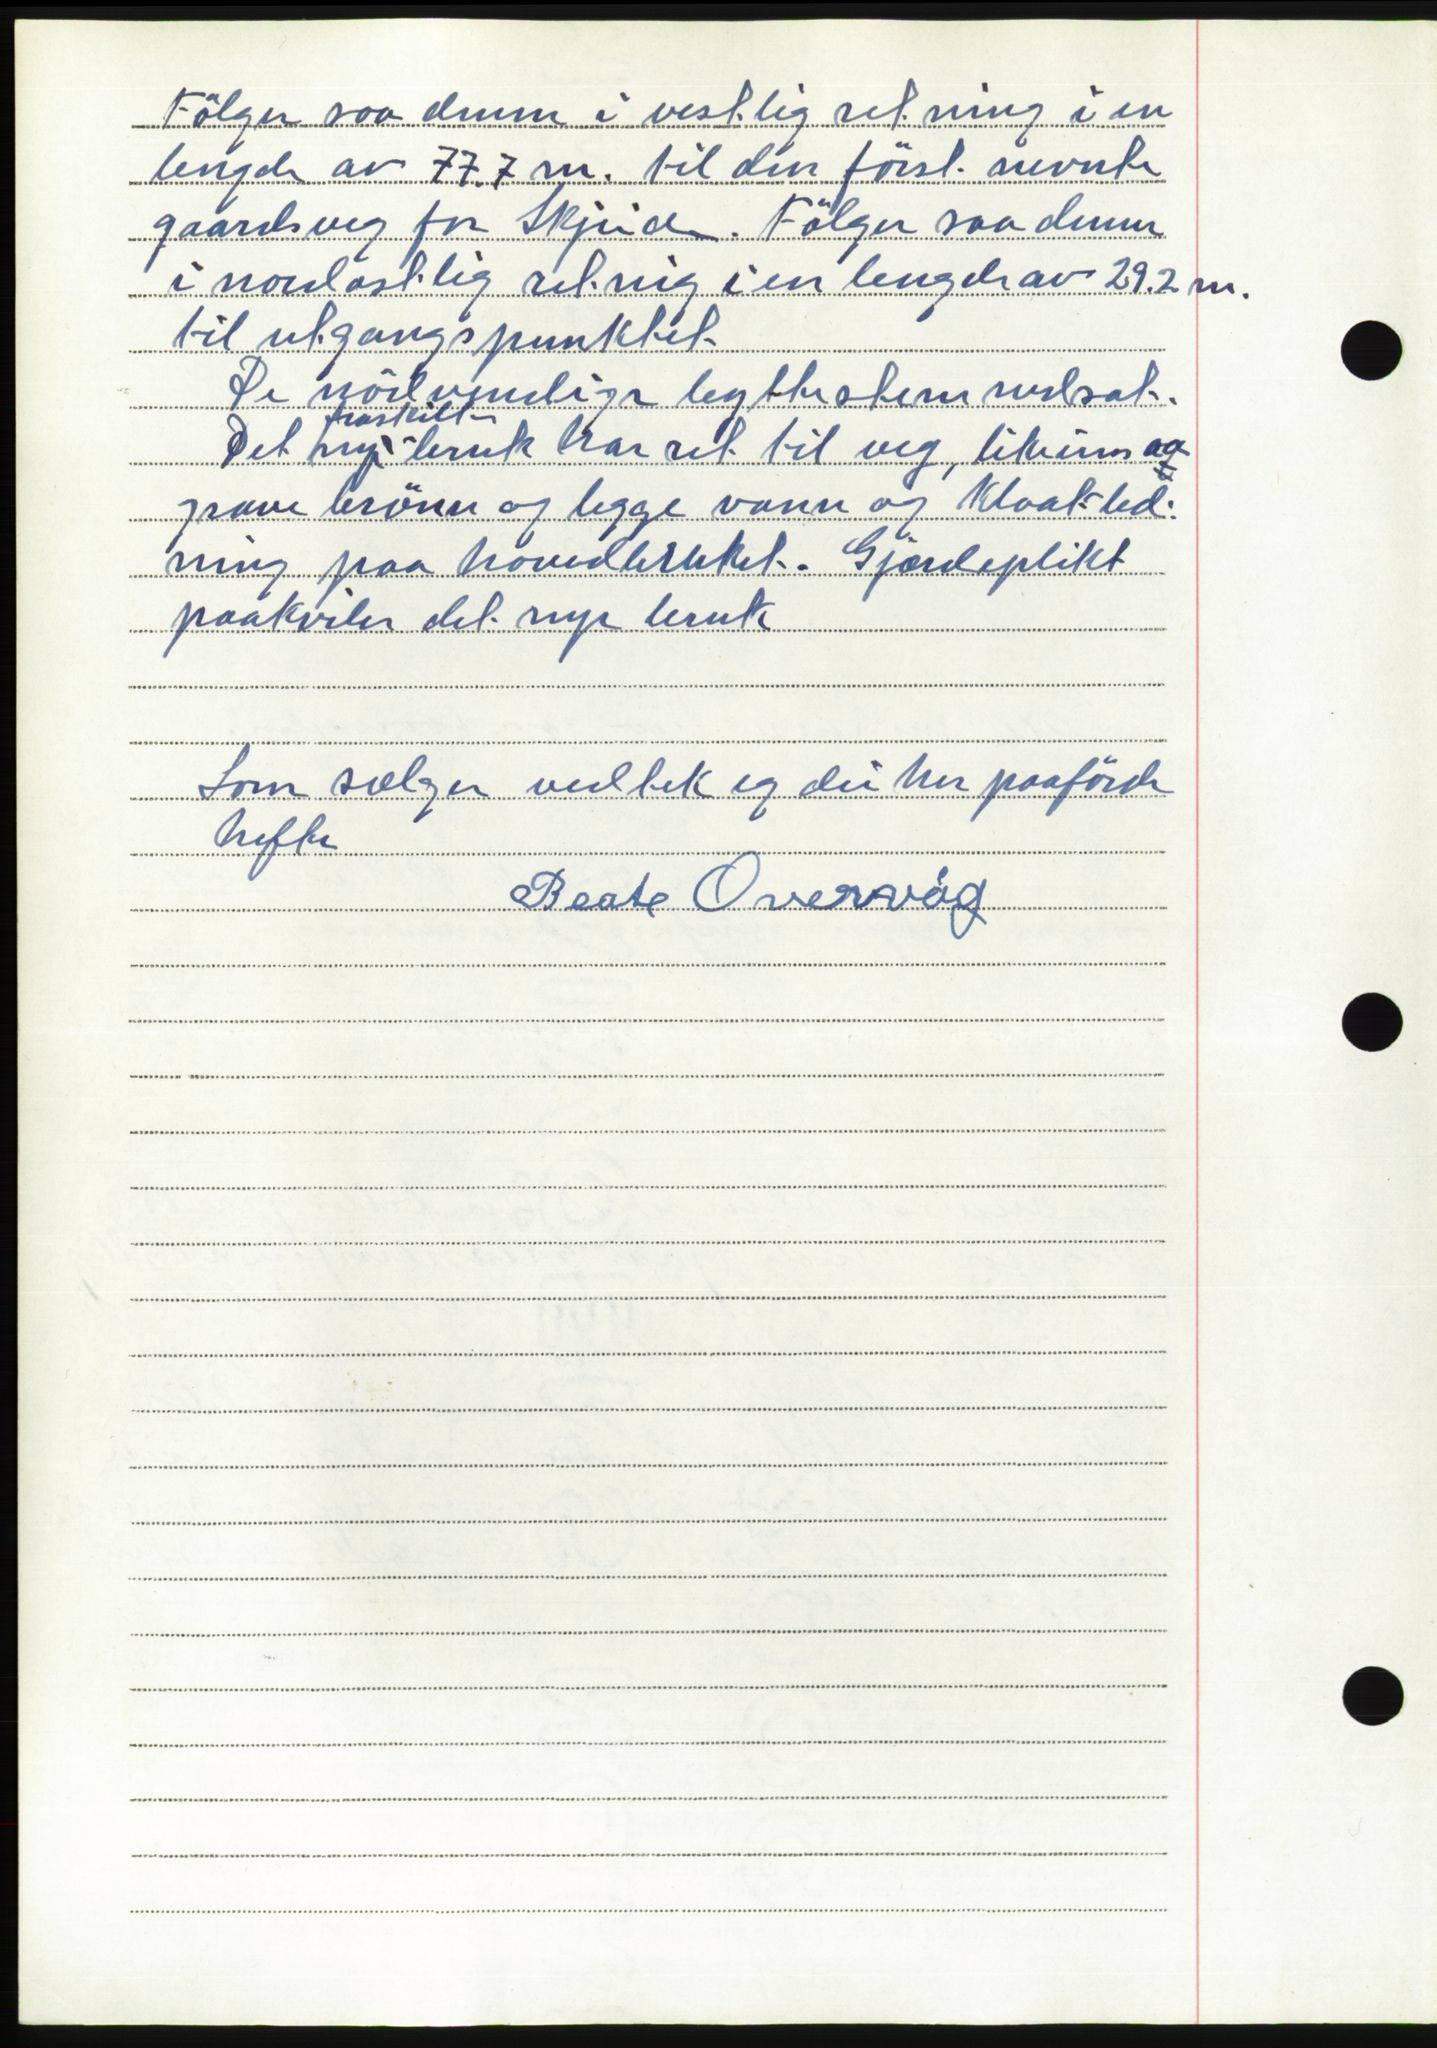 Fölger saa denne i vestlig retning i en
lengde av 77.7 m. til den först nevnte
gaardsveg for Skjeide. Fölger saa denne
i nordostlig retnig i en lengde av 29.2 m.
til utgangspunktet.
De nödvendige byttestene nedsat.
fraskilte
Det nye bruk har ret til veg, likeens og
grave brönn og legge vann og Kloakled-
ning paa hovedbruket. Gjærdeplikt
paakviler det nye bruk
Som sælger vedtek eg dei her paaförde
hefte
Beate Overvåg